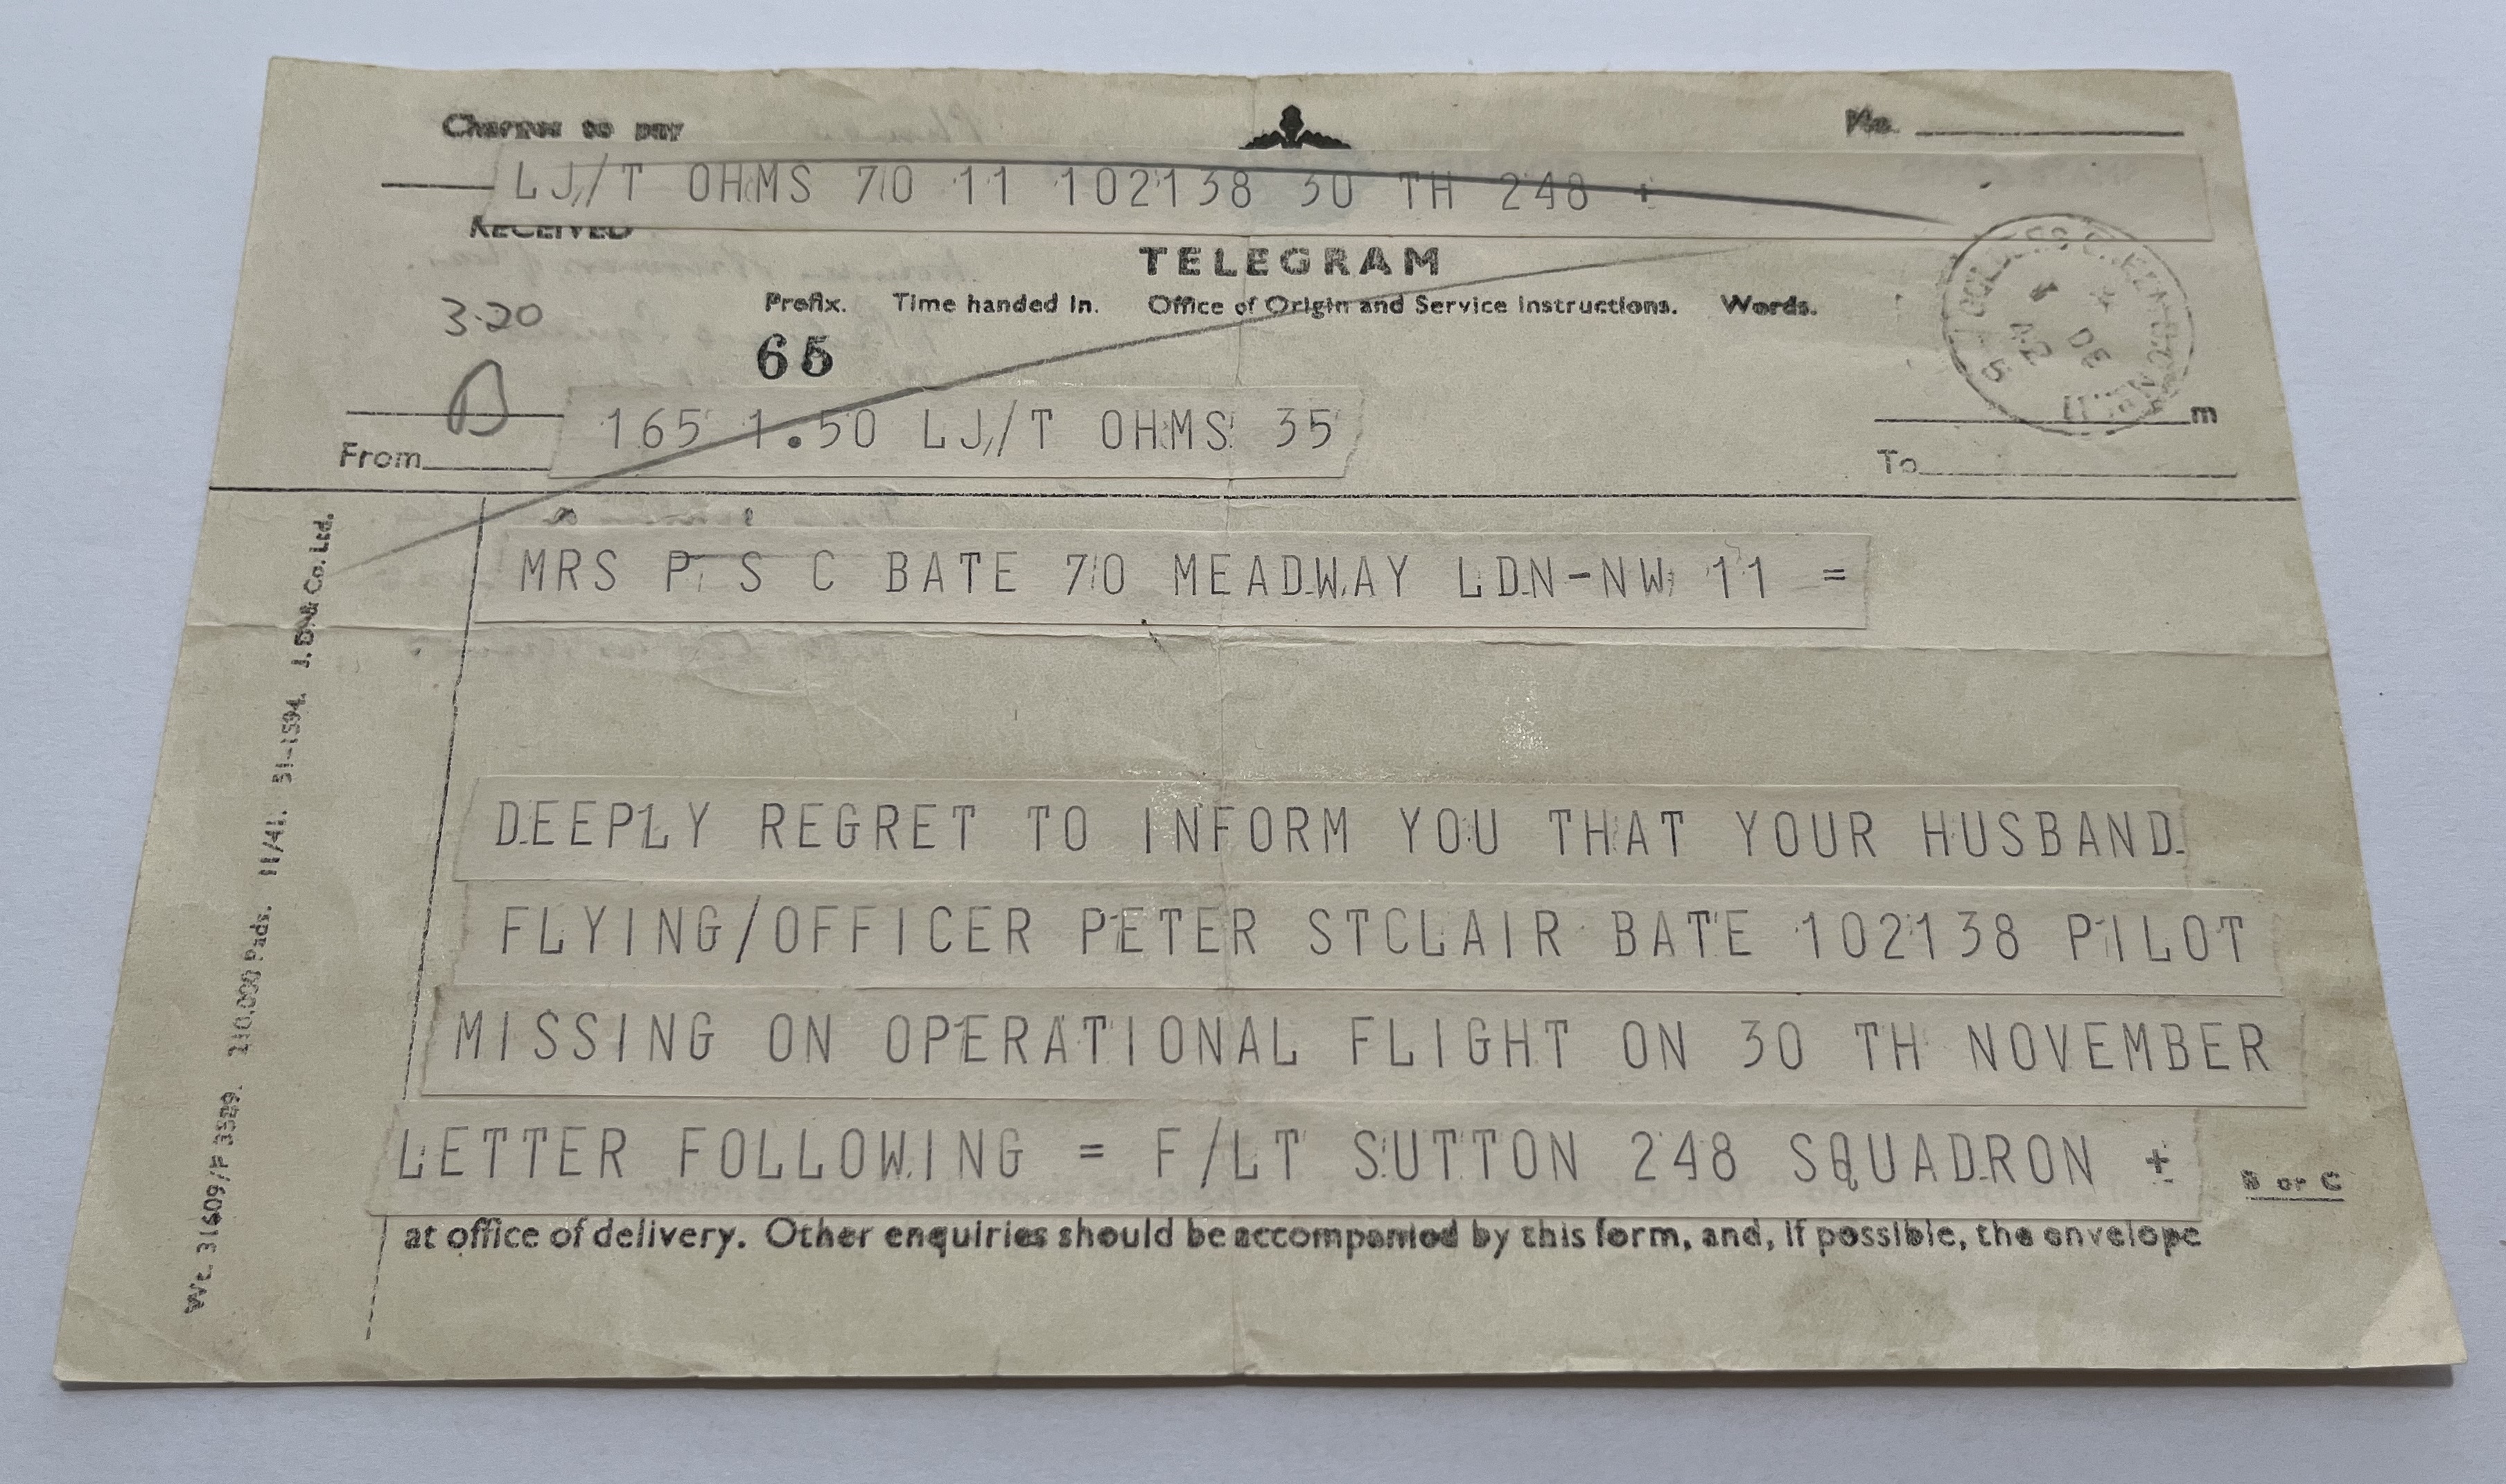 Charges to pay
No.
LJ/T OHMS 70 11 102138 30 TH 248 +
RECEIVED
TELEGRAM
3.20
Prefix. Time handed In. Office of Origin and Service Instructions. Words.
65
B
165 1.50 LJ/T OHMS 35
m
From
To
DE
42
MRS P S C BATE 70 MEADWAY LDN-NW 11 =
DEEPLY REGRET TO INFORM YOU THAT YOUR HUSBAND
FLYING/OFFICER PETER STCLAIR BATE 102138 PILOT
MISSING ON OPERATIONAL FLIGHT ON 30 TH NOVEMBER
LETTER FOLLOWING = F/LT SUTTON 248 SQUADRON +
B or C
at office of delivery. Other enquiries should be accompanied by this form, and, if possible, the envelope
Wt. 31609/P 3589. 210,000 Pads. 11/41. 51-1594. J. D. & Co. Ltd.